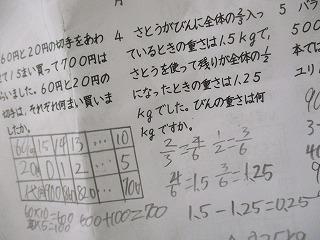 60円と20円の切手をあわ
せて15まい買って700円は
らいました。60円と20円の
切手は、それぞれ何まい買いま
したか。
60円 15 14 13 … 10
20円 0 1 2 … 5
代金 900 860 820 … 700
60×10=600
20×5=100
600+100=700
4 さとうがびんに全体の2/3入っ
ているときの重さは1.5kgで、
さとうを使って残りが全体の1/2
になったときの重さは1.25
kgでした。びんの重さは何
kgですか。
2/3=4/6 1/2=3/6
4/6=1.5 3/6=1.25
1.5-1.25=0.25
5 バラ
500
本では
ユリ